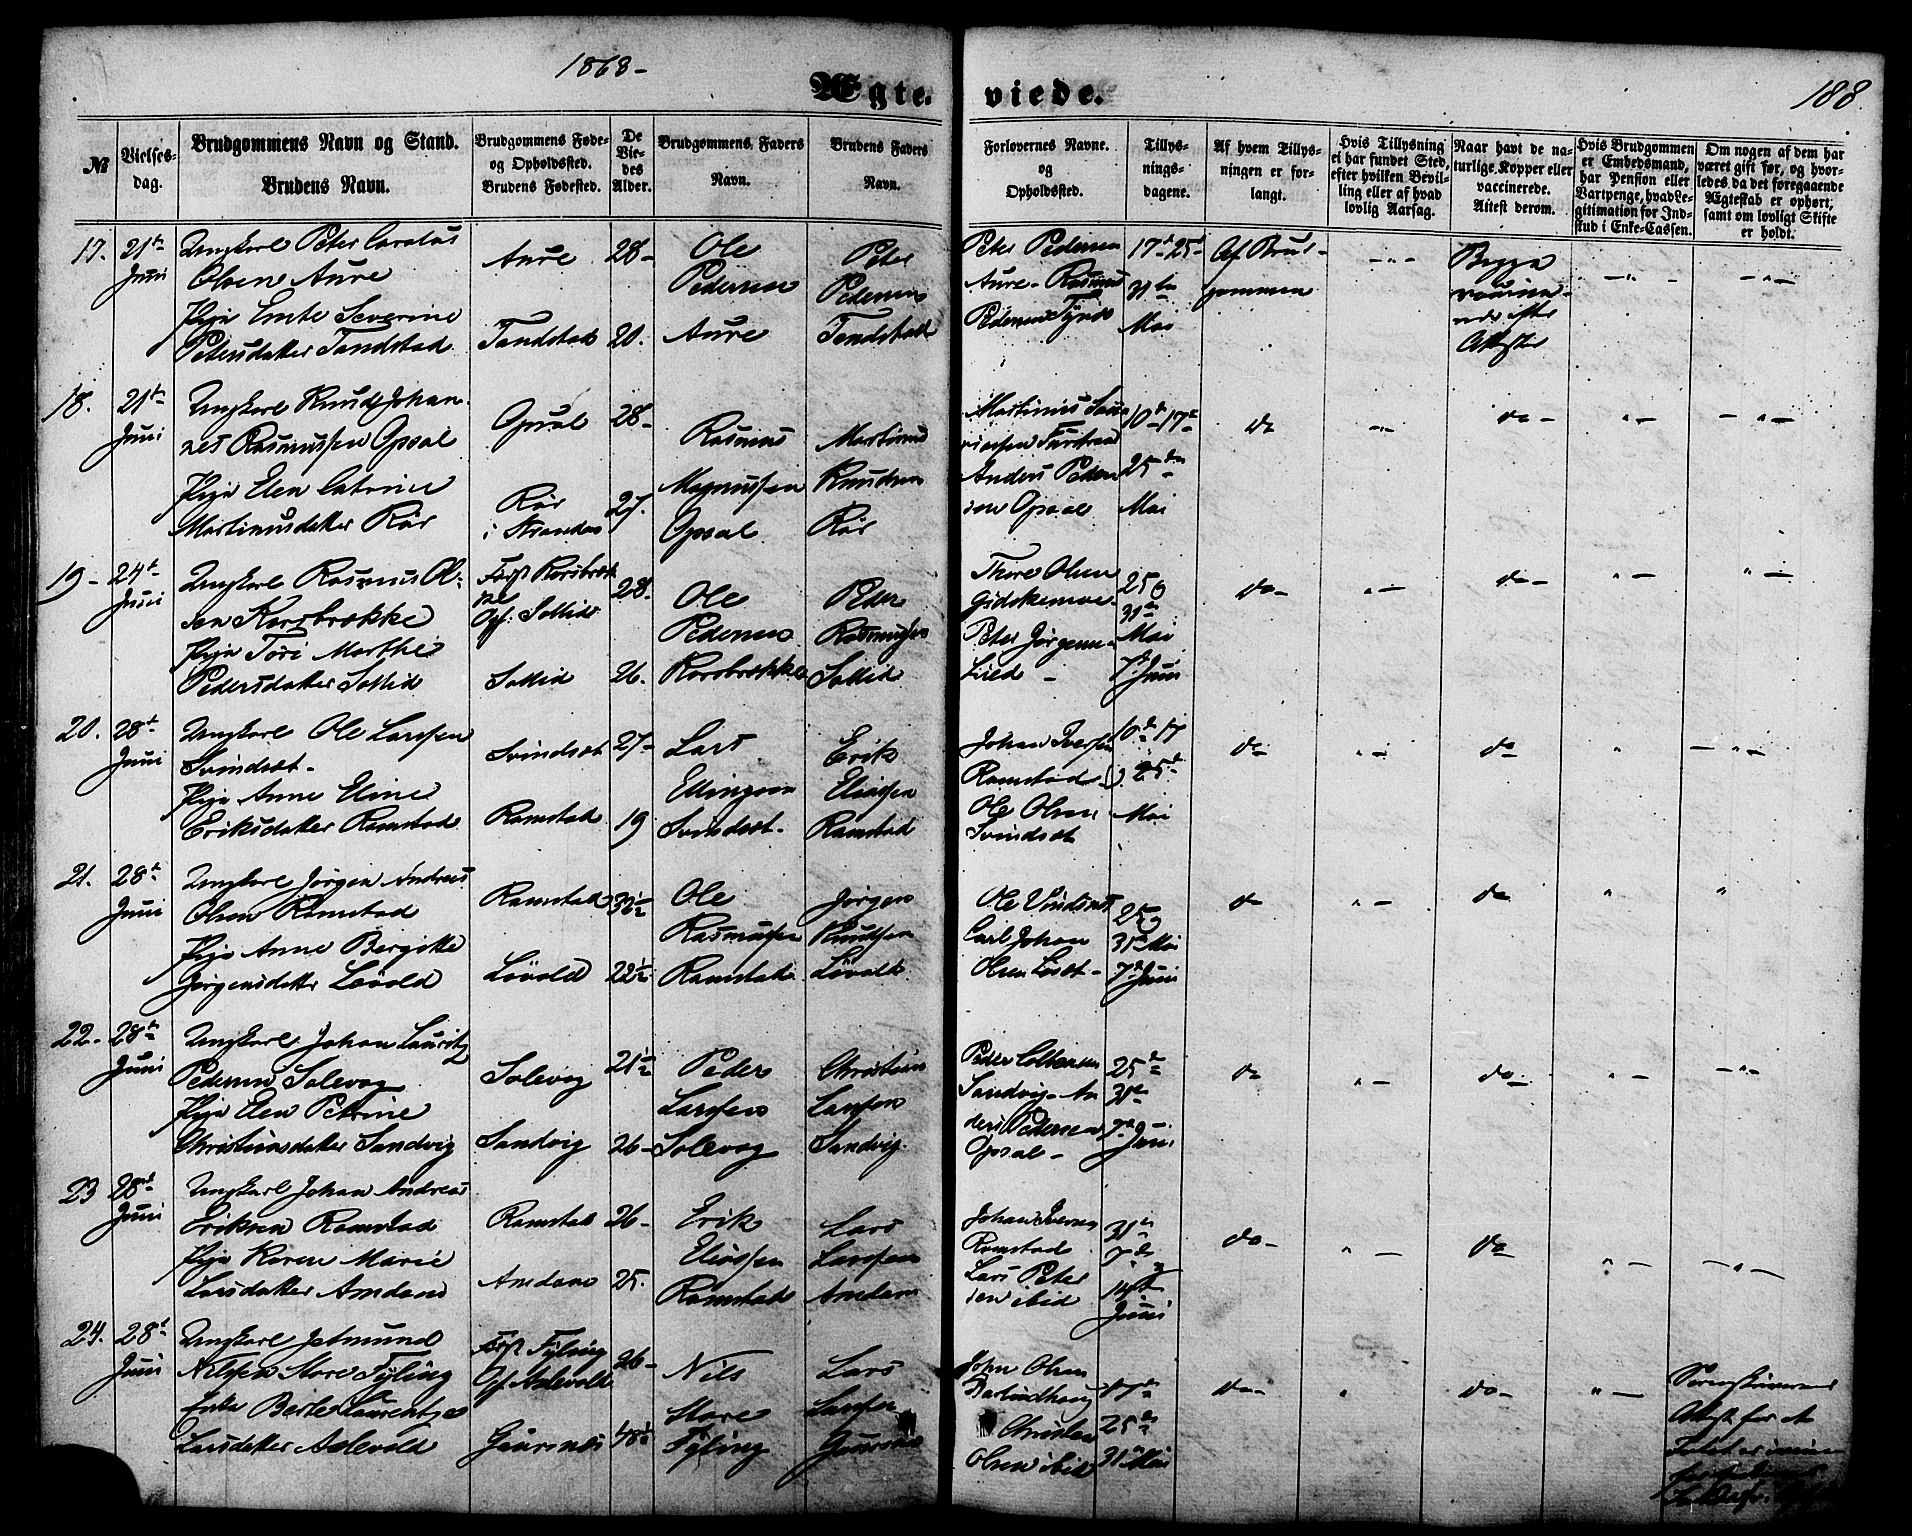 1868-
188
Ægte-
viede.
№
Vielses-
dag.
Brudgommens Navn og Stand.
Brudens Navn.
Brudgommens Føde-
og Opholdssted.
Brudens Fødested.
De
Vie-
des
Alder.
Brudgommens Faders
Navn.
Brudens Faders
Navn.
Forlovernes Navne.
og
Opholdssted.
Tillys-
nings-
dagene.
Af hvem Tillys-
ningen er for-
langt.
Hvis Tillysning
ei har fundet Sted,
efter hvilken Bevil-
ling eller af hvad
lovlig Aarsag.
Naar havt de na-
turlige Kopper eller
vaccinerede.
Attest derom.
Hvis Brudgommen
er Embedsmand,
har Pension eller
Vartpenge, hvad Le-
gitimation for Ind-
skud i Enke-Cassen.
Om nogen af dem har
været gift før, og hvor-
ledes da det foregaaende
Ægteskab er ophørt,
samt om lovligt Skifte
er holdt.
17. 21de Juni
Ungkarl Peter Carolus
Olsen Aure
Pige Emte Severine
Petersdatter Tandstad
Aure
Tandstad
28-
20.
Ole
Pedersen
Aure
Peter
Pedersen
Tandstad
Peter Pedersen
Aure- Rasmus
Pedersen
17de 25de
31te
Mai
Af Brud-
gommen
Begge
vaccine-
rede efter
Attester
18. 21de Juni
Ungkarl Knud Johan-
nes Rasmussen Opsal
Pige Elen Catrine
Martinusdatter Rör
Opsal
Rör
i Stranden
28-
27.
Rasmus
Magnussen
Opsal
Martinus
Knudsen
Rör
Martinus
Anders Peder
sen Opsal
10de 17de
25de
Mai
do
do
19- 24de Juni
Ungkarl Rasmus Ol-
sen Korsbrekke
Pige Töri Marthe
Pedersdatter Sollid
Föd Korsbrek
ke
Oph: Sollid
Sollid
28-
26.
Ole
Pedersen
Korsbrekke
Peder
Rasmussen
Sollid
Thore Olsen
Gidskemoe
Peter Jörgen
Lied
25 og
31te
Mai
7de Juni
do
do
20. 28de Juni
Ungkarl Ole Larssen
Svindset-
Pige Anne Eline
Eriksdatter Ramstad
Svindset
Ramstad
27-
19
Lars
Ellingsen
Svindset-
Erik
Eliassen
Ramstad
Johan Iversen
Ramstad
Ole Olsen
Svindset
10de 17
25de
Mai
do
do
21. 28de Juni
Ungkarl Jörgen Andreas
Olsen Ramstad
Pige Anne Bergitte
Jörgensdatter Lövold
Ramstad
Lövold
32½
22½
Ole
Rasmussen
Ramstad
Jörgen
Knudsen
Lövold
Ole Vindsnes
Carl Johan
Olsen
25 og
31te Mai
7de Juni
do
do
22. 28de Juni
Ungkarl Johan Lauritz
Pedersen Solevog
Pige Elen Petrine
Christiansdatter Sandvig
Solevog
Sandvig
21½
26-
Peder
Larssen
Solevog
Christian
Larssen
Sandvig
Peder
Sandvig- An
ders Pedersen
Opsal-
25de
31te
7de
Juni
do
do
23 28de Juni
Ungkarl Johan Andreas
Eriksen Ramstad
Pige Karen Marie
Larsdatter Amdam
Ramstad
Amdam
26-
25.
Erik
Eliassen
Ramstad
Lars
Larssen
Amdam
Johan Iversen
Ramstad
Lars Peter
sen ibid
31te
7de
14de
Juni
do
do
24. 28de Juni
Ungkarl Jetmund
Nilssen Store Fyling
Enke Berte Laurentze
Larsdatter Aslevold
Föd Fyling
Oph. Aslevold
Gausnæs
26-
48½
Nils
Store
Fyling
Lars
Larssen
Gausnæs
John Olsen
Olsen ibid
17de
25de
31 Mai
do
do
Sorenskriverens
Attest for at